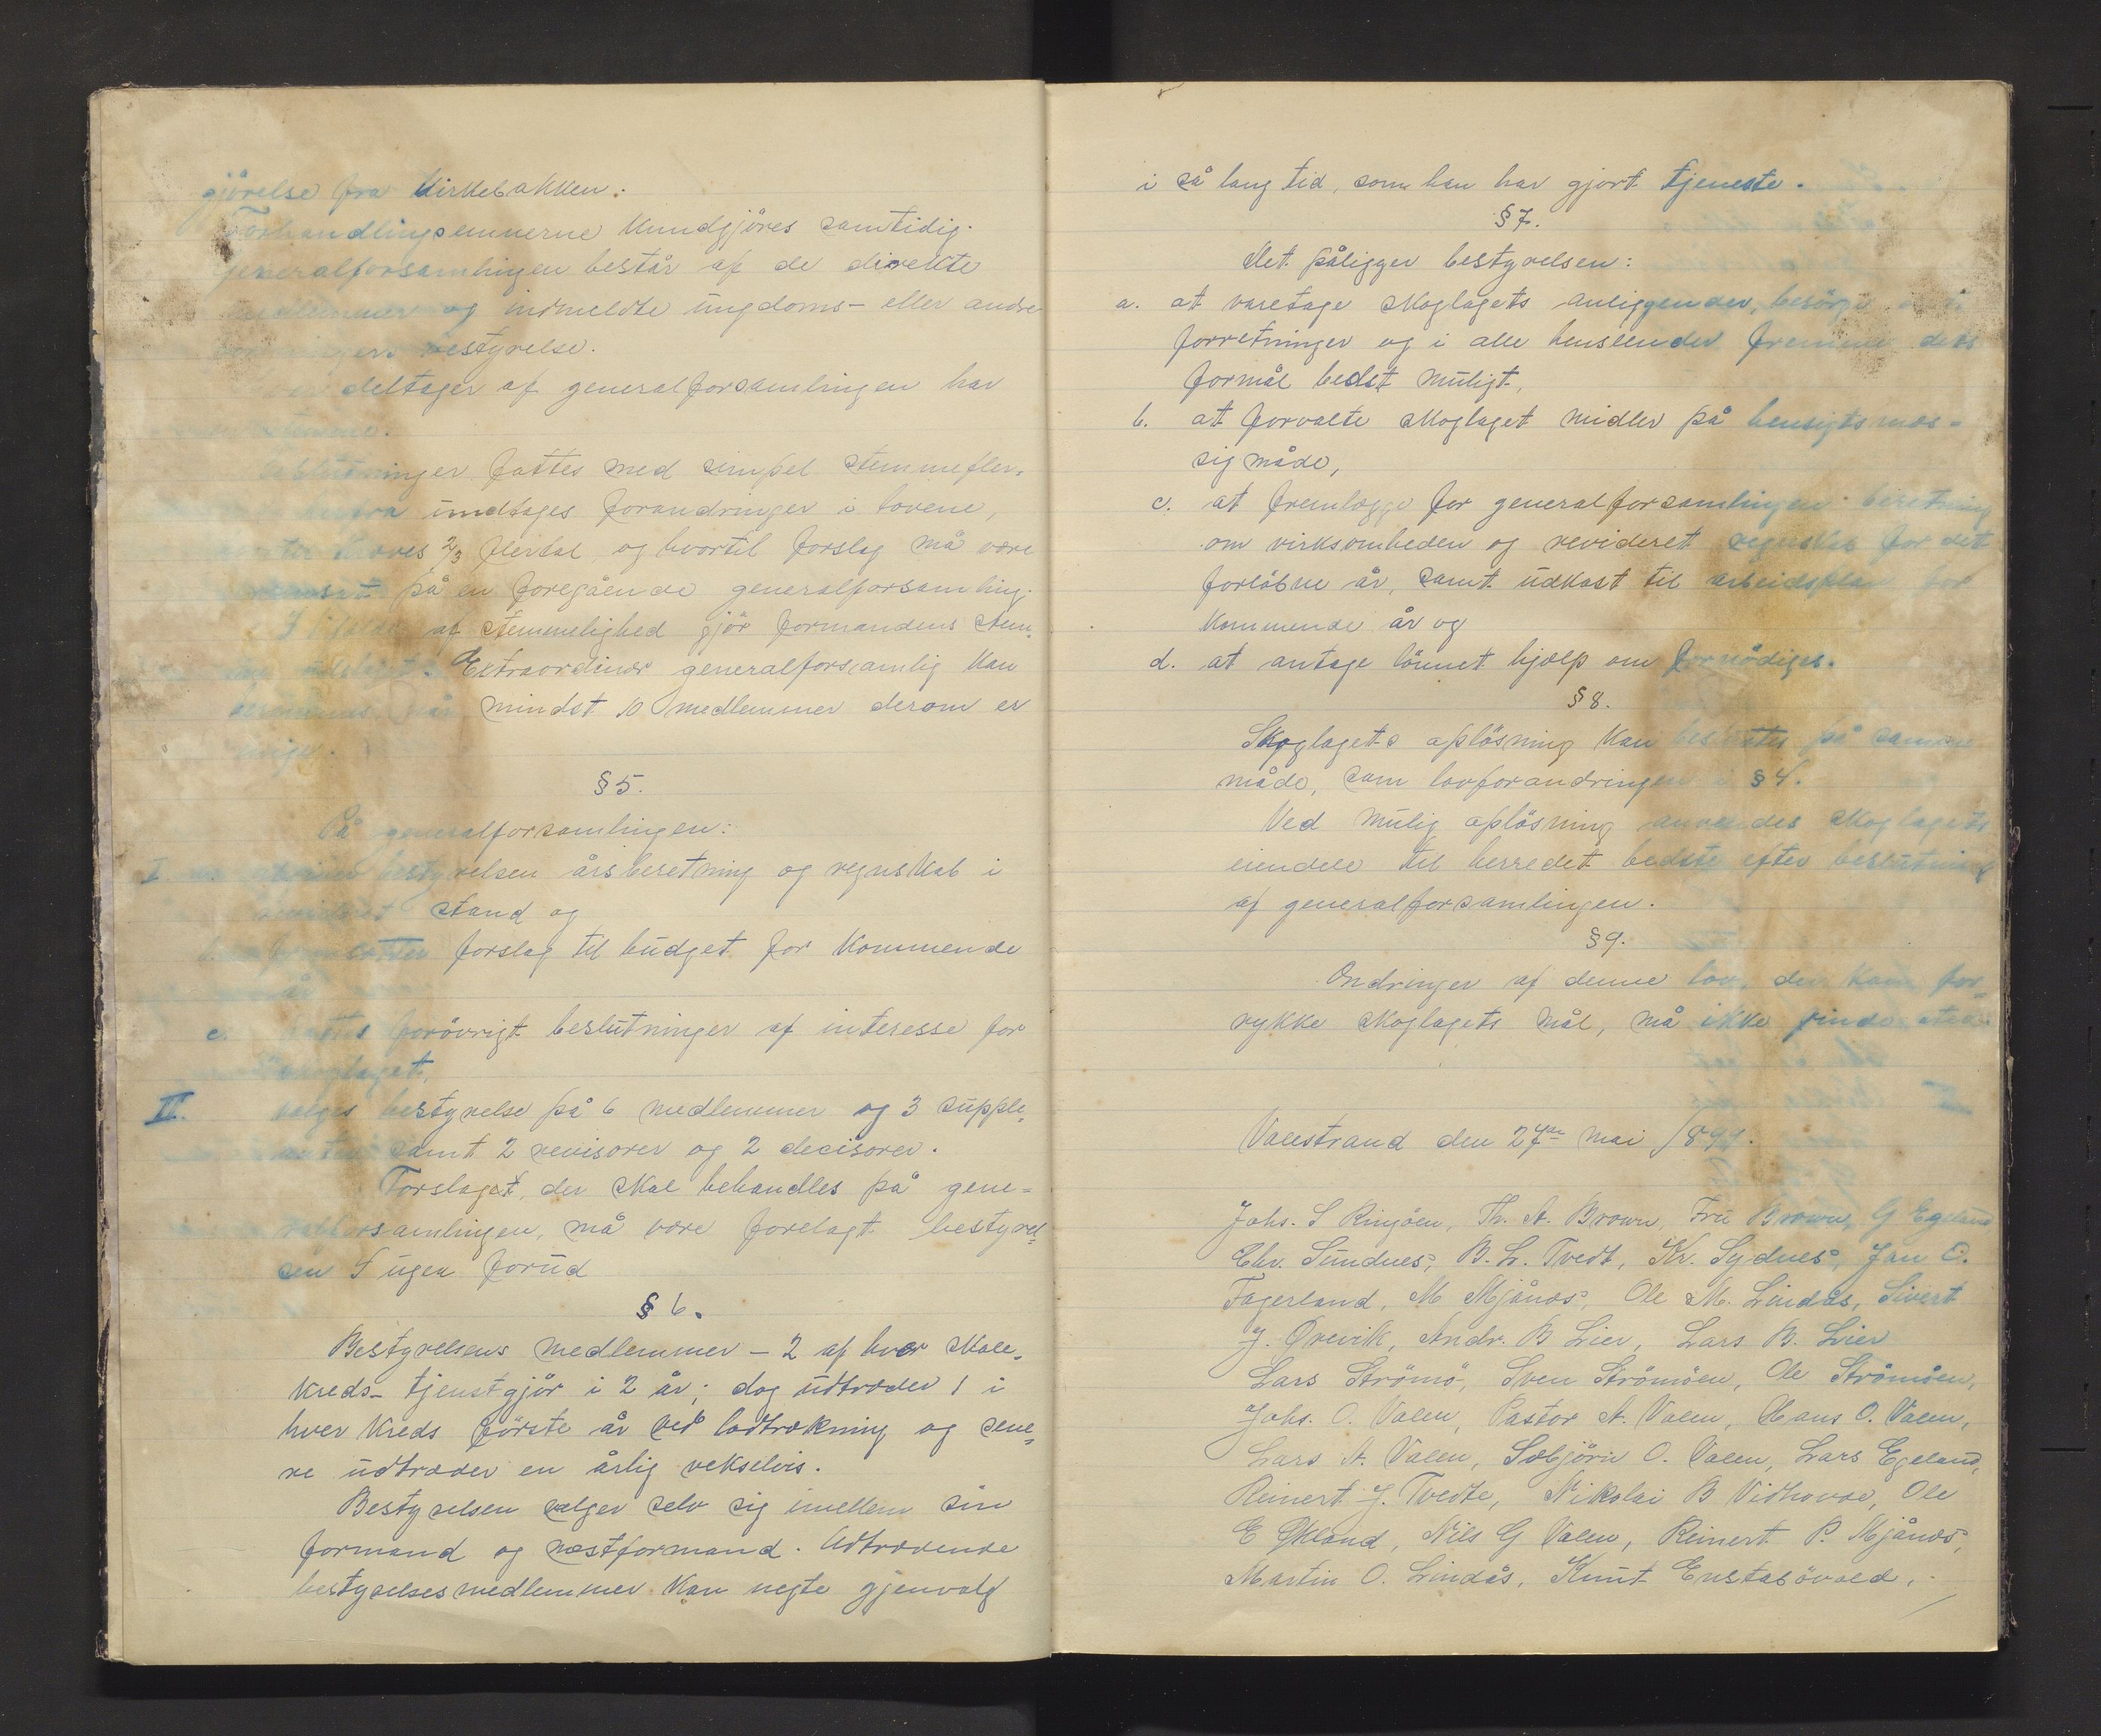 gjörelse fra Kirkebakken.
Forhandlingsemnerne kundgjöres samtidig.
Generalforsamlingen består af de direkte
medlemmer og indmeldte ungdoms- eller andre
bestyrelse.
deltager af generalforsamlingen har
stemme.
Beslutninger fattes med simpel stemmefler-
herfra undtages forandringer i lovene,
kræves 2/3 flertal og hvortil forslag må være
på en foregående generalforsamling.
I tilfælde af stemmelighed gjör formandens stem-
me udslaget. Extraordinær generalforsamlig kan
når mindst 10 medlemmer derom er
enige.
§ 5.
På generalforsamlingen:
I. bestyrelsen årsberetning og regnskab i
revideret stand og
forslag til budget for kommende
år
c. fattes forövrigt beslutninger af interesse for
skoglaget.
II. vælges bestyrelse på 6 medlemmer og 3 supple-
anter samt 2 revisorer og 2 decisorer.
Forslaget, der skal behandles på gene-
ralforsamlingen, må være forelagt bestyrel-
sen 1 uge forud
§ 6.
Bestyrelsens medlemmer - 2 af hver skole-
kreds - tjenstgjör i 2 år; dog udtræder 1 i
hver kreds förste år ved lodtrækning og sene-
re udtræder en årlig vekselvis.
Bestyrelsen vælger selv sig imellem sin
formand og næstformand. Udtrædende
bestyrelsesmedlemmer kan negte gjenvalg
i så lang tid, som han har gjort tjeneste.
§ 7.
Det påligger bestyrelsen:
a. at varetage skoglagets anliggender, besörge
forretninger og i alle henseender fremme dets
formål bedst muligt,
b. at forvalte skoglaget midler på hensigtsmæs-
sig måde,
c. at fremlægge for generalforsamlingen beretning
om virksomheden og revideret regnskab for det
forlöbne år, samt udkast til arbeidsplan for
kommende år og
d. at antage lönnet hjælp om fornödiges.
§ 8.
Skoglagets oplösning kan besluttes på samme
måde, som lovforandringen i § 4.
Ved mulig oplösning anvendes skoglagets
eiendele til herredet bedste efter beslutning
af generalforsamlingen.
§ 9.
Ændringer af denne lov, der kan for-
rykke skoglagets mål, må ikke finde sted.
Valestrand den 27de mai 1899.
Johs. S Ringöen, Th. A. Brown, Fru Brown, G Egeland
Chr. Sundnes, B. L. Tvedt, Kr. Sydnes, Jan E.
Fagerland, M Mjånæs, Ole M. Lindås, Sivert
J. Örevik, Andr. B Lier, Lars B. Lier
Lars Strömö, Sven Strömöen, Ole Strömöen,
Johs. O. Valen, Pastor A. Valen, Hans O. Valen,
Lars A. Valen, Sæbjörn O. Valen, Lars Egeland,
Reinert J. Tvedte, Nikolai B Vidhovde, Ole
E Ökland, Nils G Valen, Reinert P. Mjånæs,
Martin O. Lindås, Knut